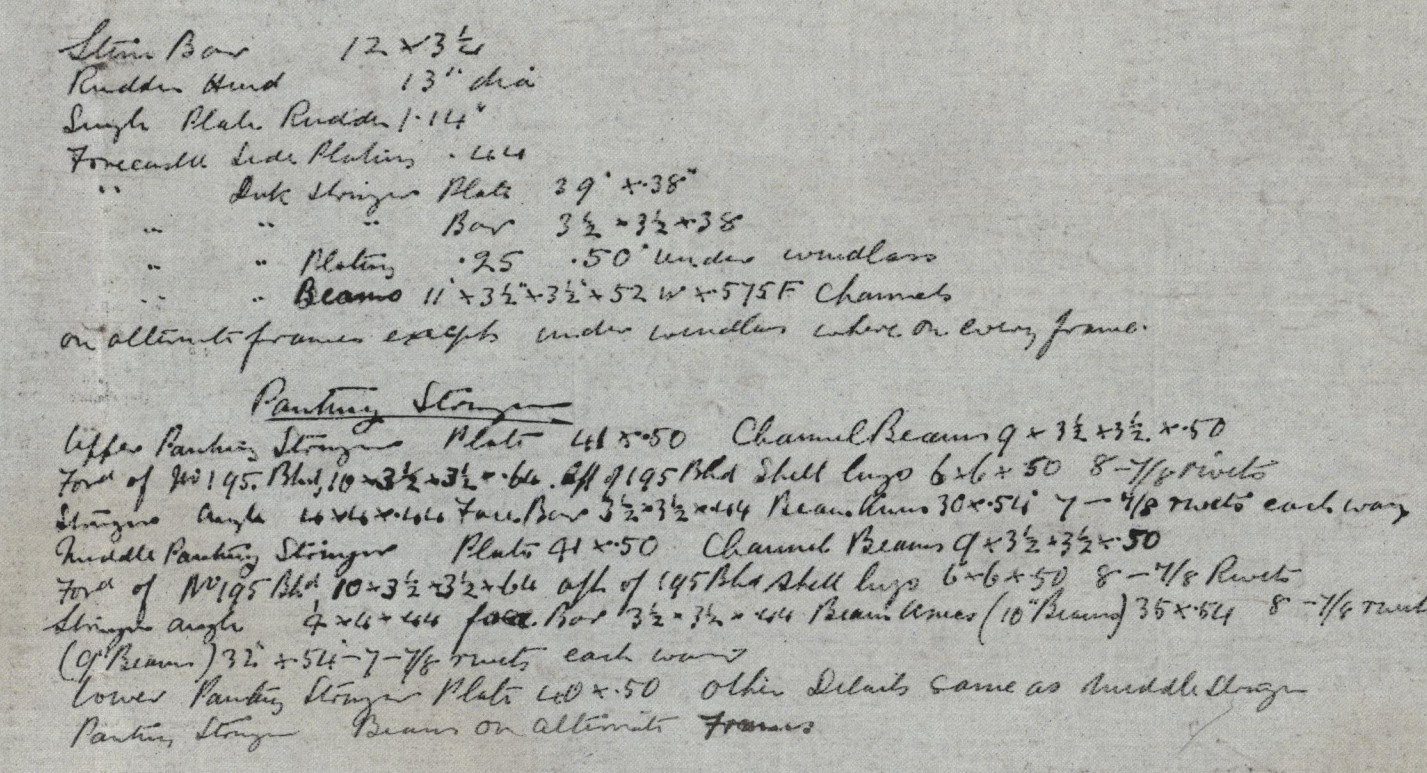 Stem Bar 12 x 3½
Rudder Head 13" dia
Single Plate Rudder 1.14"
Forecastle Side Plating .44
" Deck Stringer Plate 39" x .38"
" " " Bar 3½ x 3½ x .38
" " Plating .25 .50" under windlass
" " Beams 11" x 3½" x 3½" x .52 W x .575 F Channels
on alternate frames except under windlass where on every frame.
Panting Stringers
Upper Panting Stringer Plate 41 x .50 Channel Beams 9 x 3½ x 3½ x .50
Ford of No 195 Bhd, 10 x 3½ x 3½ x .64 Aft of 195 Bhd Shell lugs 6 x 6 x .50 8 - 7/8 rivets
Stringer angle 4 x 4 x .44 Face Bar 3½ x 3½ x .44 Beam Knees 30 x .54 7 - 7/8 rivets each way
Middle Panting Stringer Plate 41 x .50 Channel Beams 9 x 3½ x 3½ x .50
Ford of No 195 Bhd 10 x 3½ x 3½ x .64 aft of 195 Bhd Shell lugs 6 x 6 x .50 8 - 7/8 Rivets
Stringer angle 4 x 4 x .44 face Bar 3½ x 3½ x .44 Beam Knees (10" Beams) 35 x .54 8 - 7/8 rivets
(9" Beams) 32" x .54 - 7 - 7/8 rivets each way
Lower Panting Stringer Plate 40 x .50 other Details same as middle Stringer
Panting Stringer Beams on alternate Frames